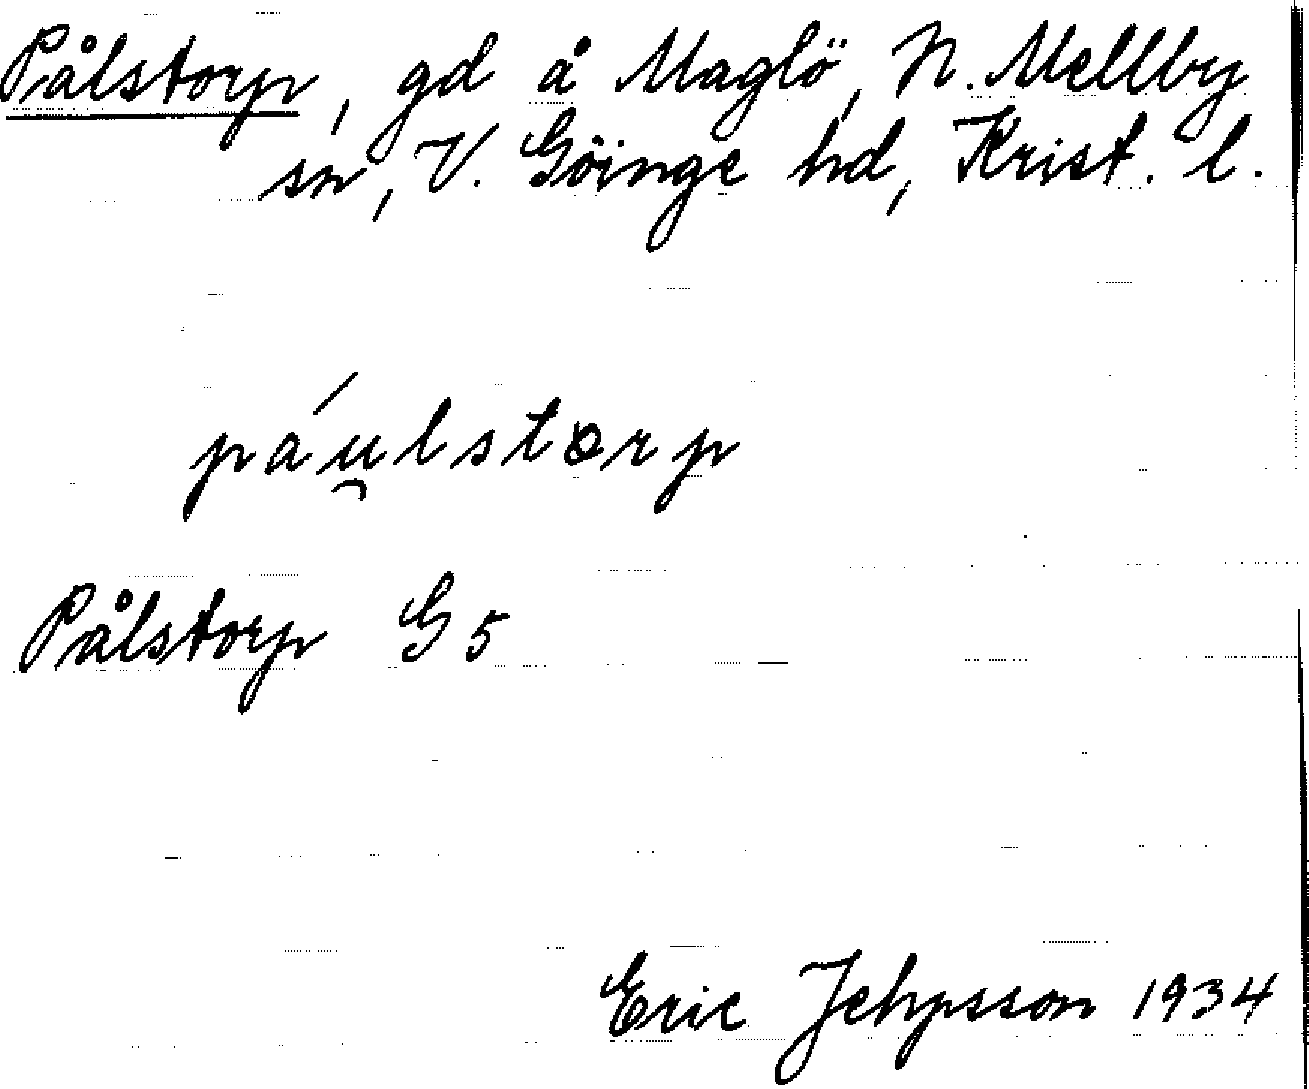 Pålstorp, gd å Maglö, N. Mellby
sn, V. Göinge hd, Krist. l.
páu̯lstorp
Pålstorp G 5
Eric Jehpsson 1934